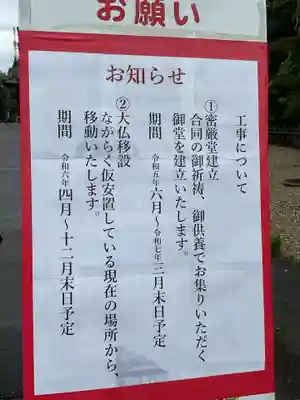 お願い
お知らせ
工事について
①密厳堂建立
合同の御祈祷、御供養でお集りいただく
御堂を建立いたします。
期間 令和五年六月〜令和七年三月末日予定
②大仏移設
ながらく仮安置している現在の場所から、
移動いたします。
期間 令和六年四月〜十二月末日予定